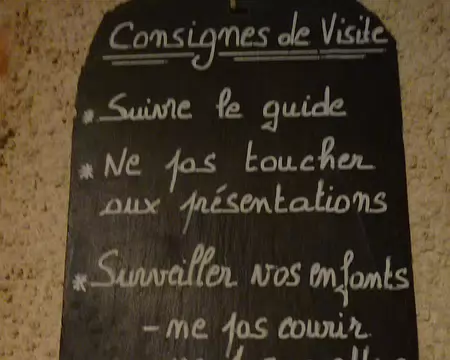 Consignes de Visite
* Suivre le guide
* Ne pas toucher
aux présentations
* Surveiller vos enfants
- ne pas courir